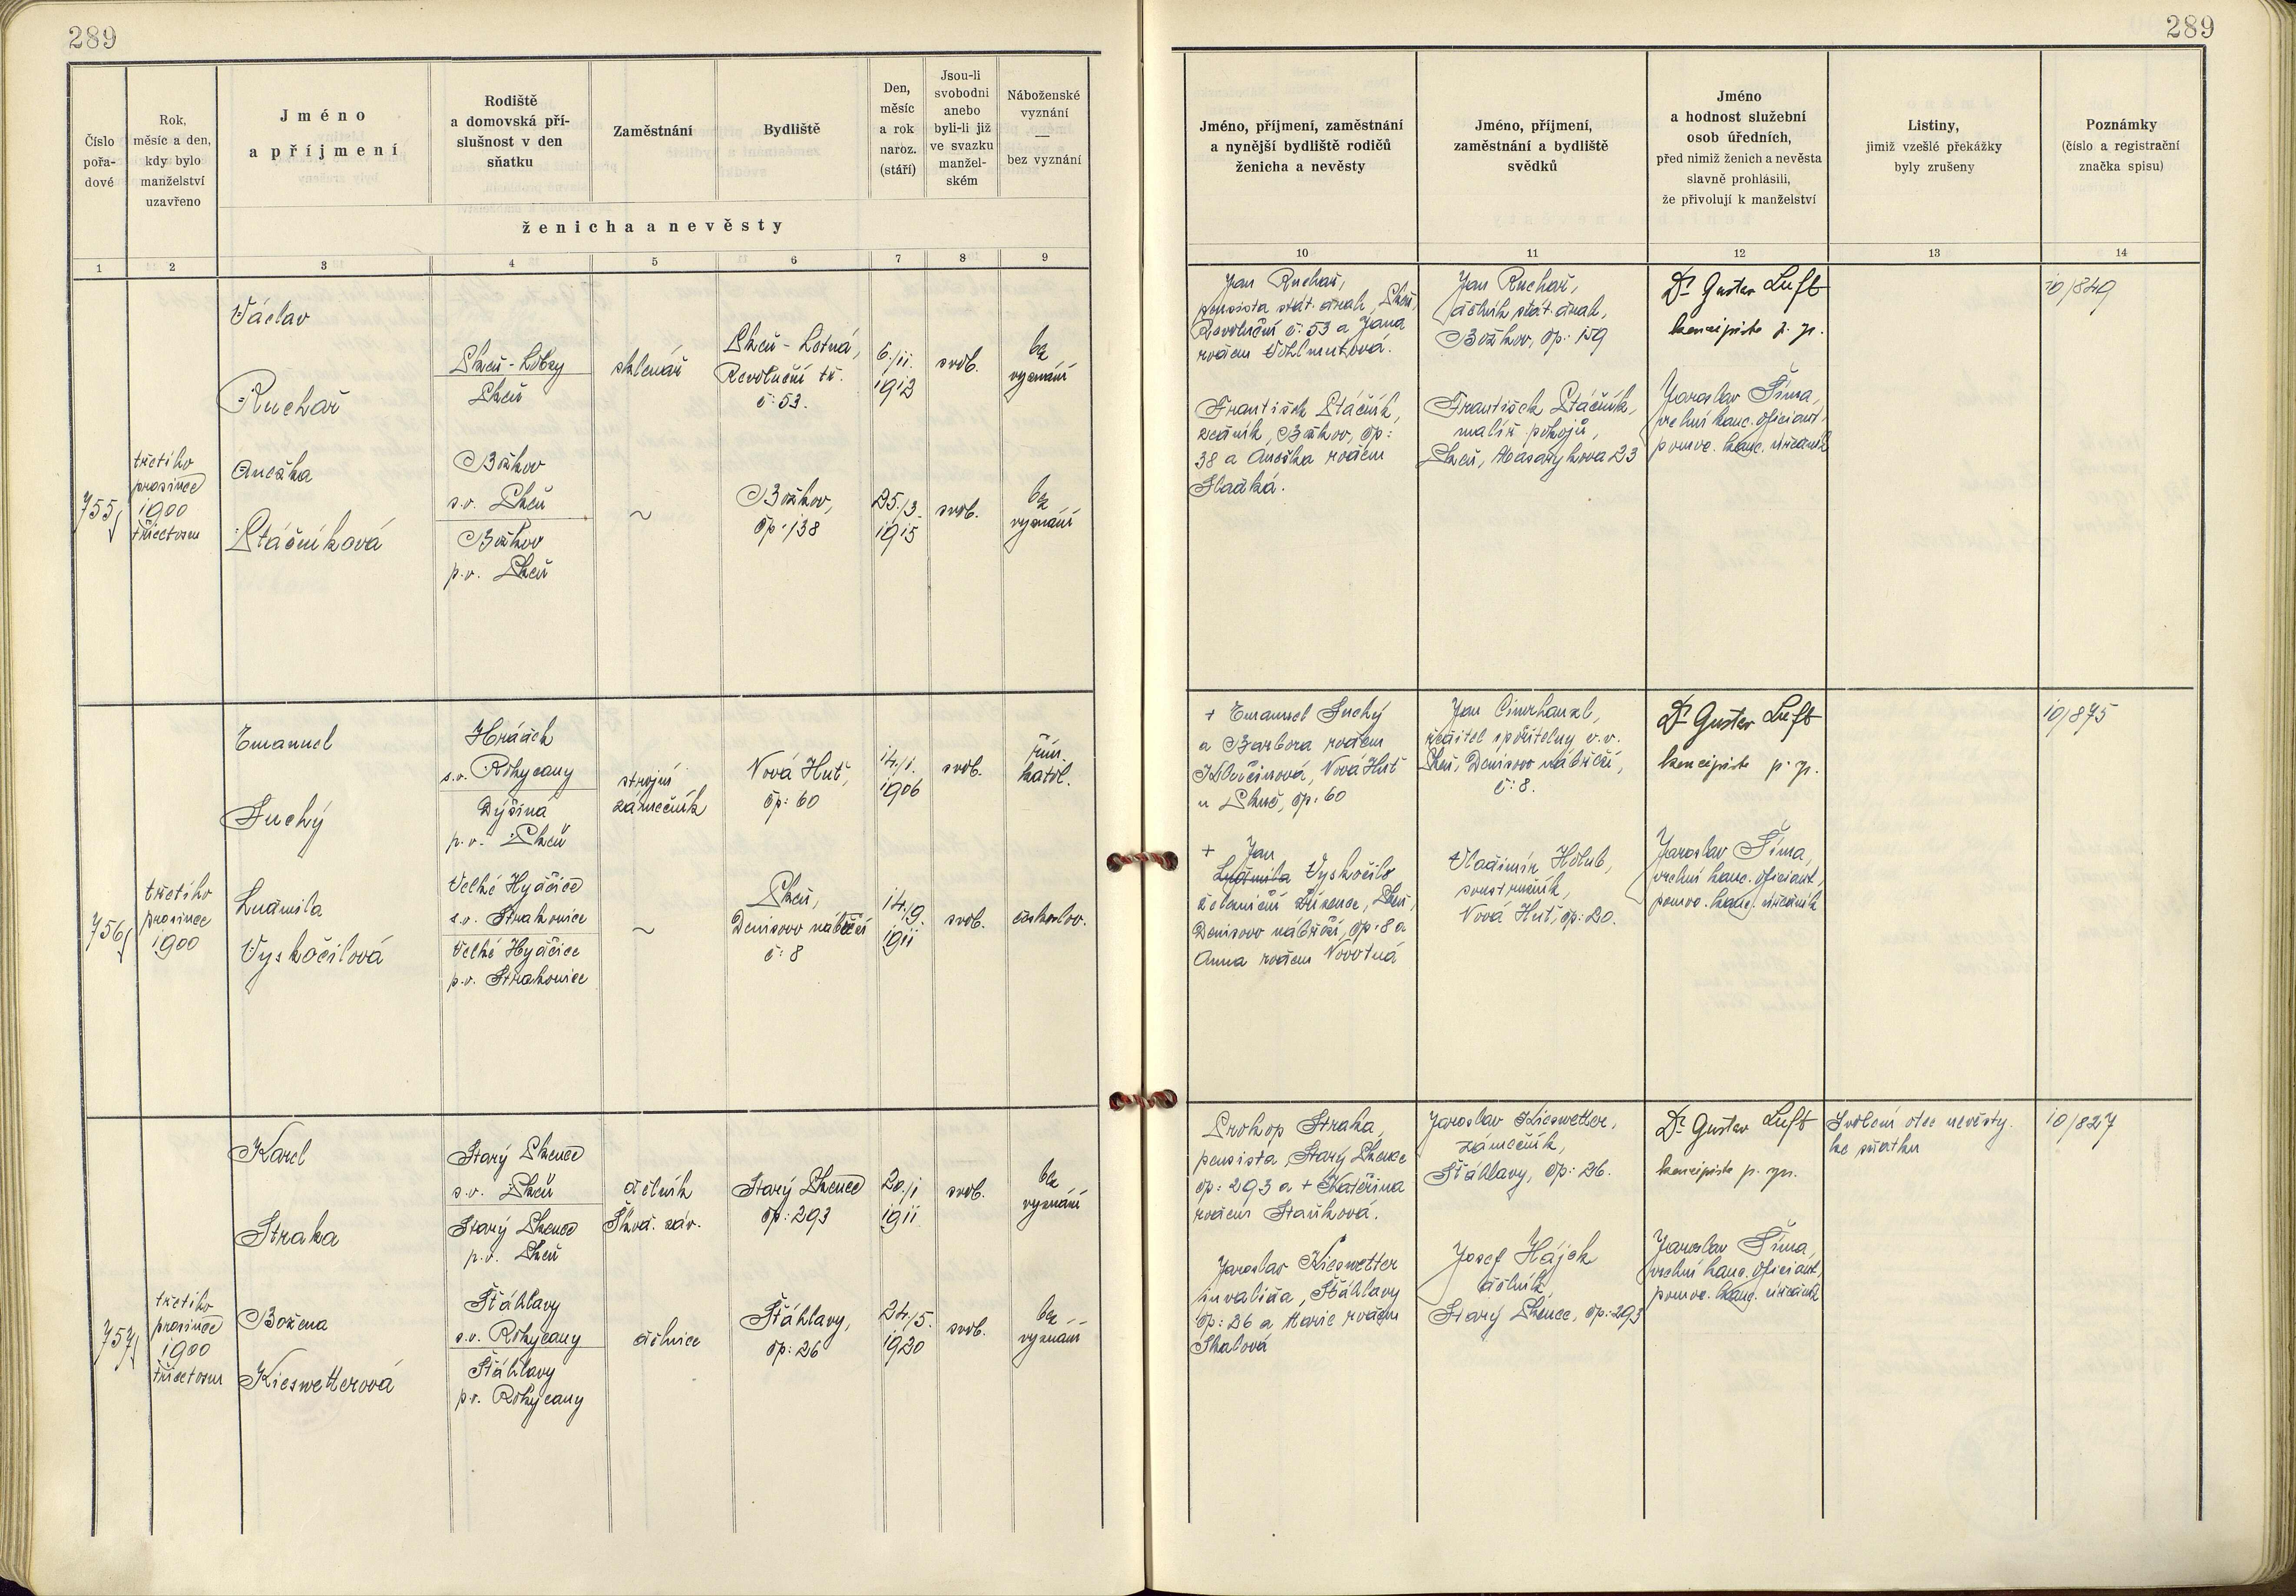 289
289
Číslo
pořa-
dové
Rok,
měsíc a den,
kdy bylo
manželství
uzavřeno
Jméno
a příjmení
Rodiště
a domovská pří-
slušnost v den
sňatku
Zaměstnání
Bydliště
Den,
měsíc
a rok
naroz.
(stáří)
Jsou-li
svobodni
anebo
byli-li již
ve svazku
manžel-
ském
Náboženské
vyznání
—
bez vyznání
ženicha a nevěsty
Jméno, příjmení, zaměstnání
a nynější bydliště rodičů
ženicha a nevěsty
Jméno, příjmení,
zaměstnání a bydliště
svědků
Jméno
a hodnost služební
osob úředních,
před nimiž ženich a nevěsta
slavně prohlásili,
že přivolují k manželství
Listiny,
jimiž vzešlé překážky
byly zrušeny
Poznámky
(číslo a registrační
značka spisu)
1 2 3 4 5 6 7 8 9
10 11 12 13 14
755
třetího
prosince
1900
třicetosm
Václav
Ruchař
Plzeň-Lobzy
Plzeň
sklenář
Plzeň-Letná,
Revoluční tř.
č: 53.
6./11.
1912
svob.
bez
vyznání
Anežka
Ptáčníková
Božkov
s.o. Plzeň
Božkov
p.o. Plzeň
~
Božkov,
čp: 138
25./3.
1915
svob.
bez
vyznání
Jan Ruchař,
pensista stát. drah, Plzeň,
Revoluční č: 53 a Jana
rozem Wohlmutová.
František Ptáčník,
zedník, Božkov, čp:
38 a Anežka rozem
Sladká.
Jan Ruchař,
dělník stát. drah,
Božkov, čp: 159
František Ptáčník,
malíř pokojů,
Plzeň, Masarykova 23
Dr Gustav Luft
koncipista p. sp.
Jaroslav Šíma,
vrchní kanc. oficiant,
pomoc. kanc. úředník
10/849
756
třetího
prosince
1900
Emanuel
Suchý
Hrádek
s.o. Rokycany
Dýšina
p.o. Plzeň
strojní
zámečník
Nová Huť,
čp: 60
14./1.
1906
svob.
řím.
katol.
Ludmila
Vyskočilová
Velké Hydčice
s.o. Strakonice
Velké Hydčice
p.o. Strakonice
~
Plzeň,
Denisovo nábřeží
č: 8
14./9.
1911
svob.
českoslov.
+ Emanuel Suchý
a Barbora rozem
Nová Huť
u Plzně, čp. 60
+ Jan
Ludmila Vyskočil,
železniční zřízenec, Plzeň,
Denisovo nábřeží, čp: 8 a
Anna rozem Novotná
Jan Cimrhanzl,
ředitel spořitelny v.v.
Plzeň, Denisovo nábřeží,
č: 8.
Vladimír Holub,
soustružník,
Nová Huť, čp: 20.
Dr Gustav Luft
koncipista p. sp.
Jaroslav Šíma,
vrchní kanc. oficiant,
pomoc. kanc. úředník
10/875
757
třetího
prosince
1900
třicetosm
Karel
Straka
Starý Plzenec
s.o. Plzeň
Starý Plzenec
p.o. Plzeň
dělník
Škod. záv.
Starý Plzenec
čp: 293
20./1
1911
svob.
bez
vyznání
Božena
Kieswetterová
Šťáhlavy
s.o. Rokycany
Šťáhlavy
p.o. Rokycany
dělnice
Šťáhlavy,
čp: 26
24./5.
1920
svob.
bez
vyznání
Prokop Straka,
pensista, Starý Plzenec
čp: 293 a + Kateřina
rozem Staňková.
Jaroslav Kieswetter
invalida, Šťáhlavy
čp: 26 a Marie rozem
Skalová
Jaroslav Kieswetter,
zámečník,
Šťáhlavy, čp: 26.
Josef Hájek
dělník,
Starý Plzenec, čp: 293
Dr Gustav Luft
koncipista p. sp.
Jaroslav Šíma,
vrchní kanc. oficiant,
pomoc. kanc. úředník
Svolení otce nevěsty
ke sňatku
10/827